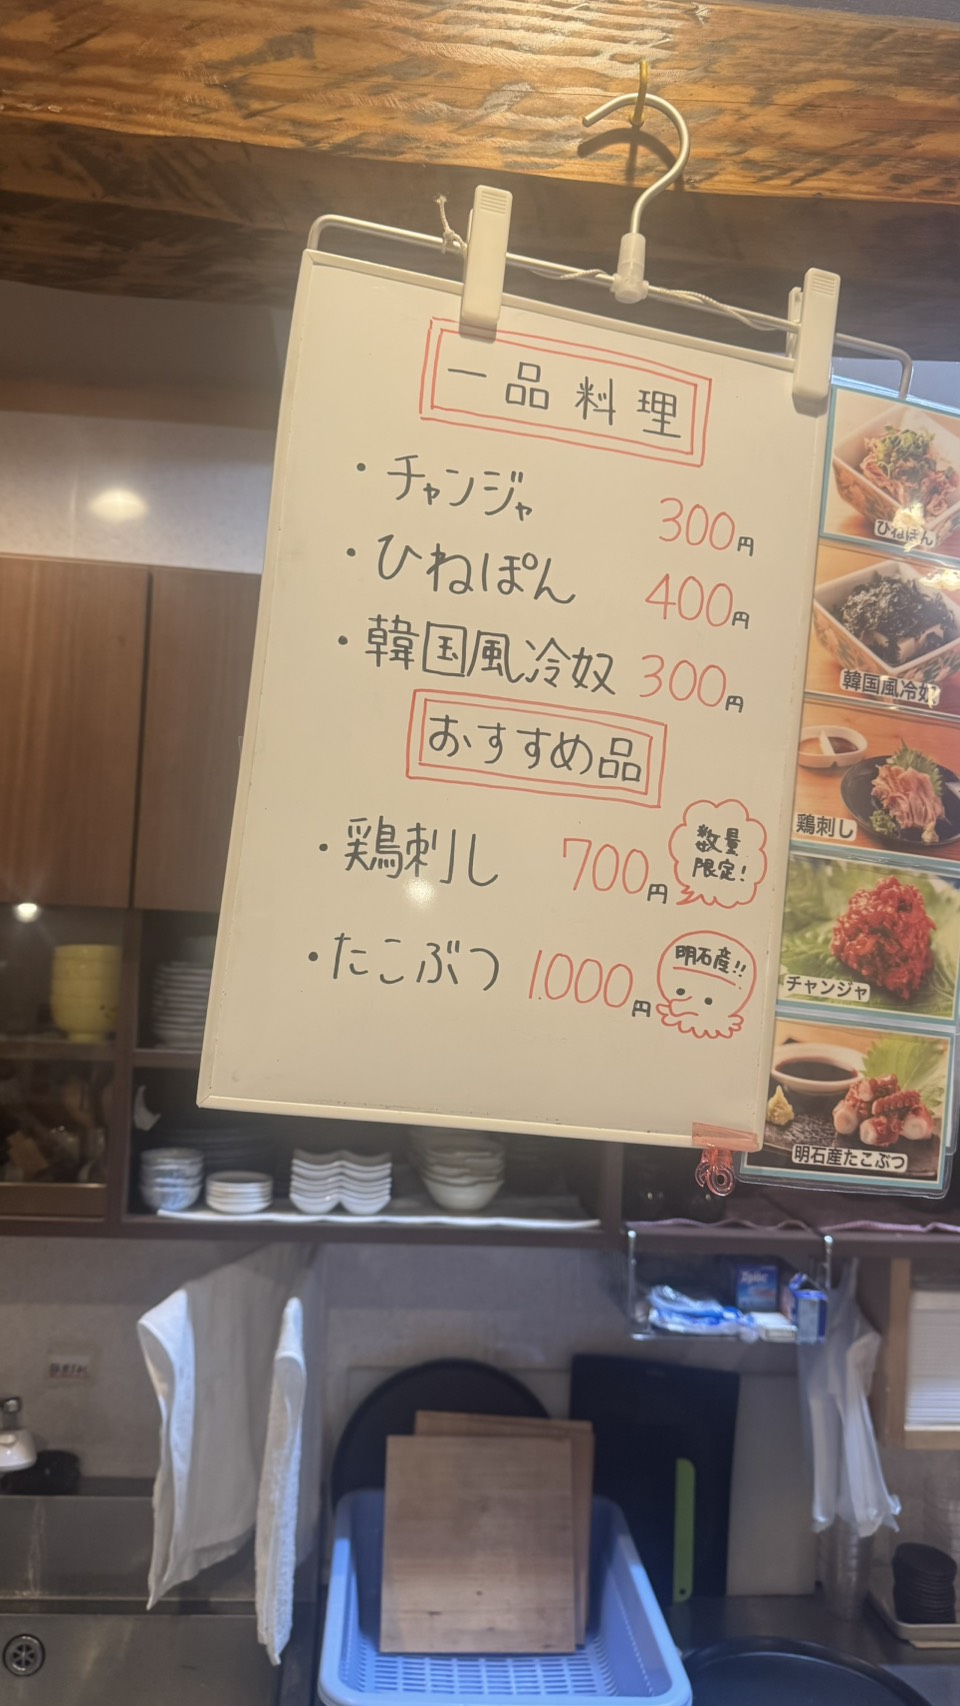 一品料理
・チャンジャ 300円
・ひねぽん 400円
・韓国風冷奴 300円
おすすめ品
・鶏刺し 700円
数量
限定!
・たこぶつ 1000円
明石産!!
ひねぽん
韓国風冷奴
鶏刺し
チャンジャ
明石産たこぶつ
Ziploc